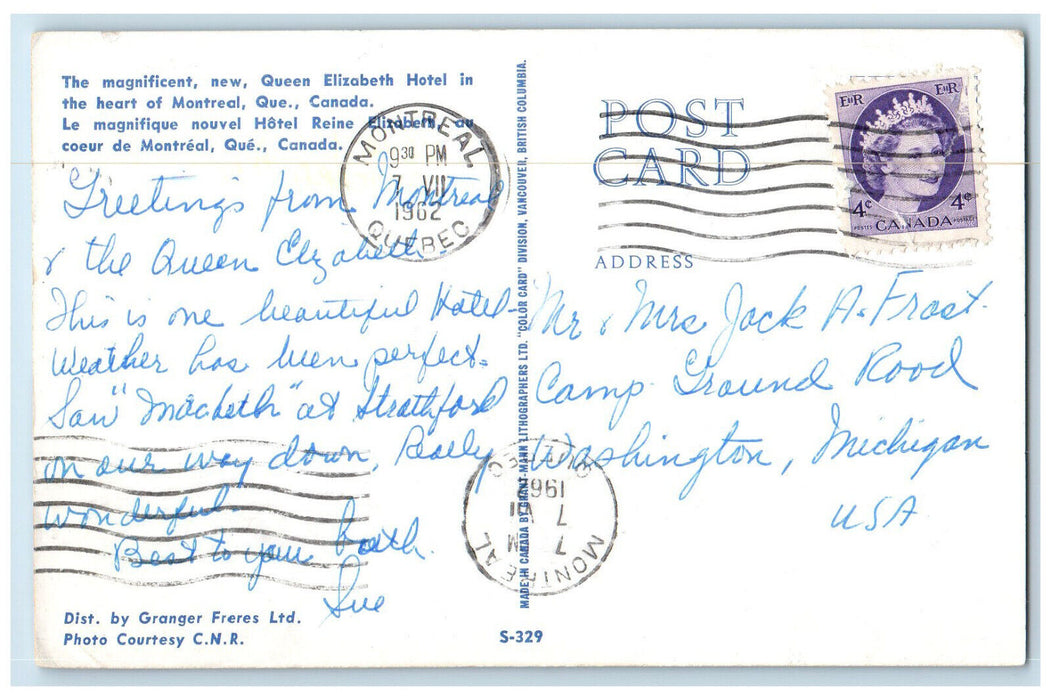 The magnificent, new, Queen Elizabeth Hotel in
the heart of Montreal, Que., Canada.
Le magnifique nouvel Hôtel Reine Elizabeth, au
coeur de Montréal, Qué., Canada.
MONTREAL
930 PM
7 VII
1962
QUEBEC
Greetings from Montreal
& the Queen Elizabeth.
This is one beautiful Hotel-
Weather has been perfect-
Saw "Macbeth" at Stratford
on our way down, Really
wonderful.
Best to you both.
Sue
Dist. by Granger Freres Ltd.
Photo Courtesy C.N.R.
MADE IN CANADA BY GRANT-MANN LITHOGRAPHERS LTD. "COLOR CARD" DIVISION, VANCOUVER, BRITISH COLUMBIA.
S-329
POST
CARD
ADDRESS
EIIR EIIR
4c 4c
POSTES CANADA POSTAGE
Mr & Mrs Jack A. Frost.
Camp Ground Road
Washington, Michigan
USA
MONTREAL
7 PM
7 VII
196
QUEBEC